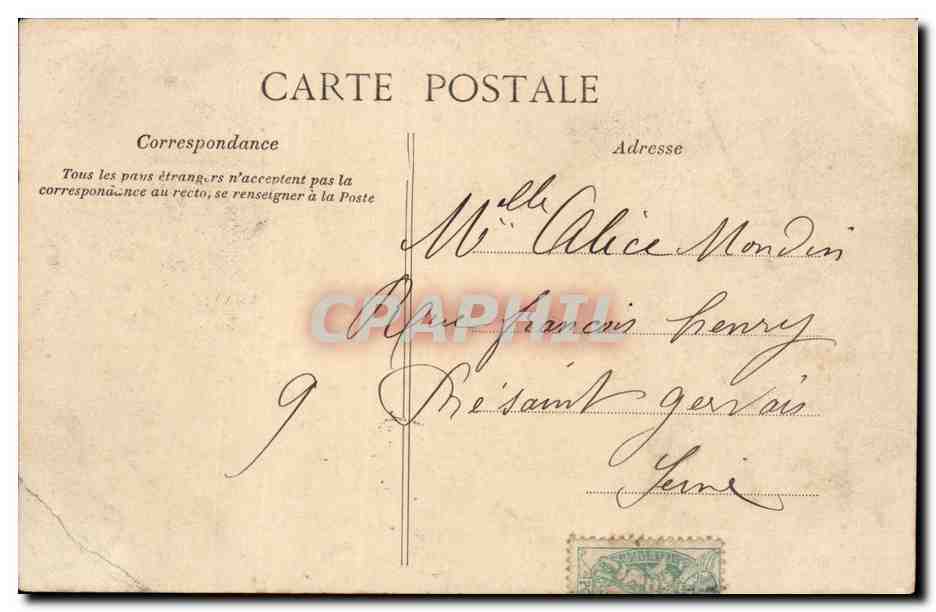 CARTE POSTALE
Correspondance
Tous les pays étrangers n'acceptent pas la
correspondance au recto, se renseigner à la Poste
Adresse
Melle Alice Mondin
Rue françois henry
9 Présaint gervais
Seine
CPAPHIL